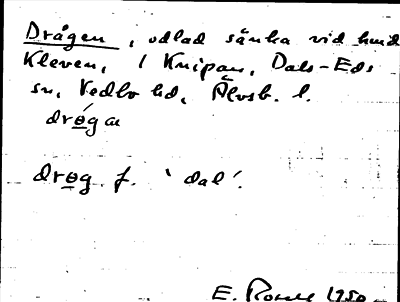 Drågen, odlad sänka vid hmd
Kleven, i Knipan, Dals-Eds
sn, Vedbo hd, Älvsb. l.
drøga
drøg f. 'dal'.
E. 1950